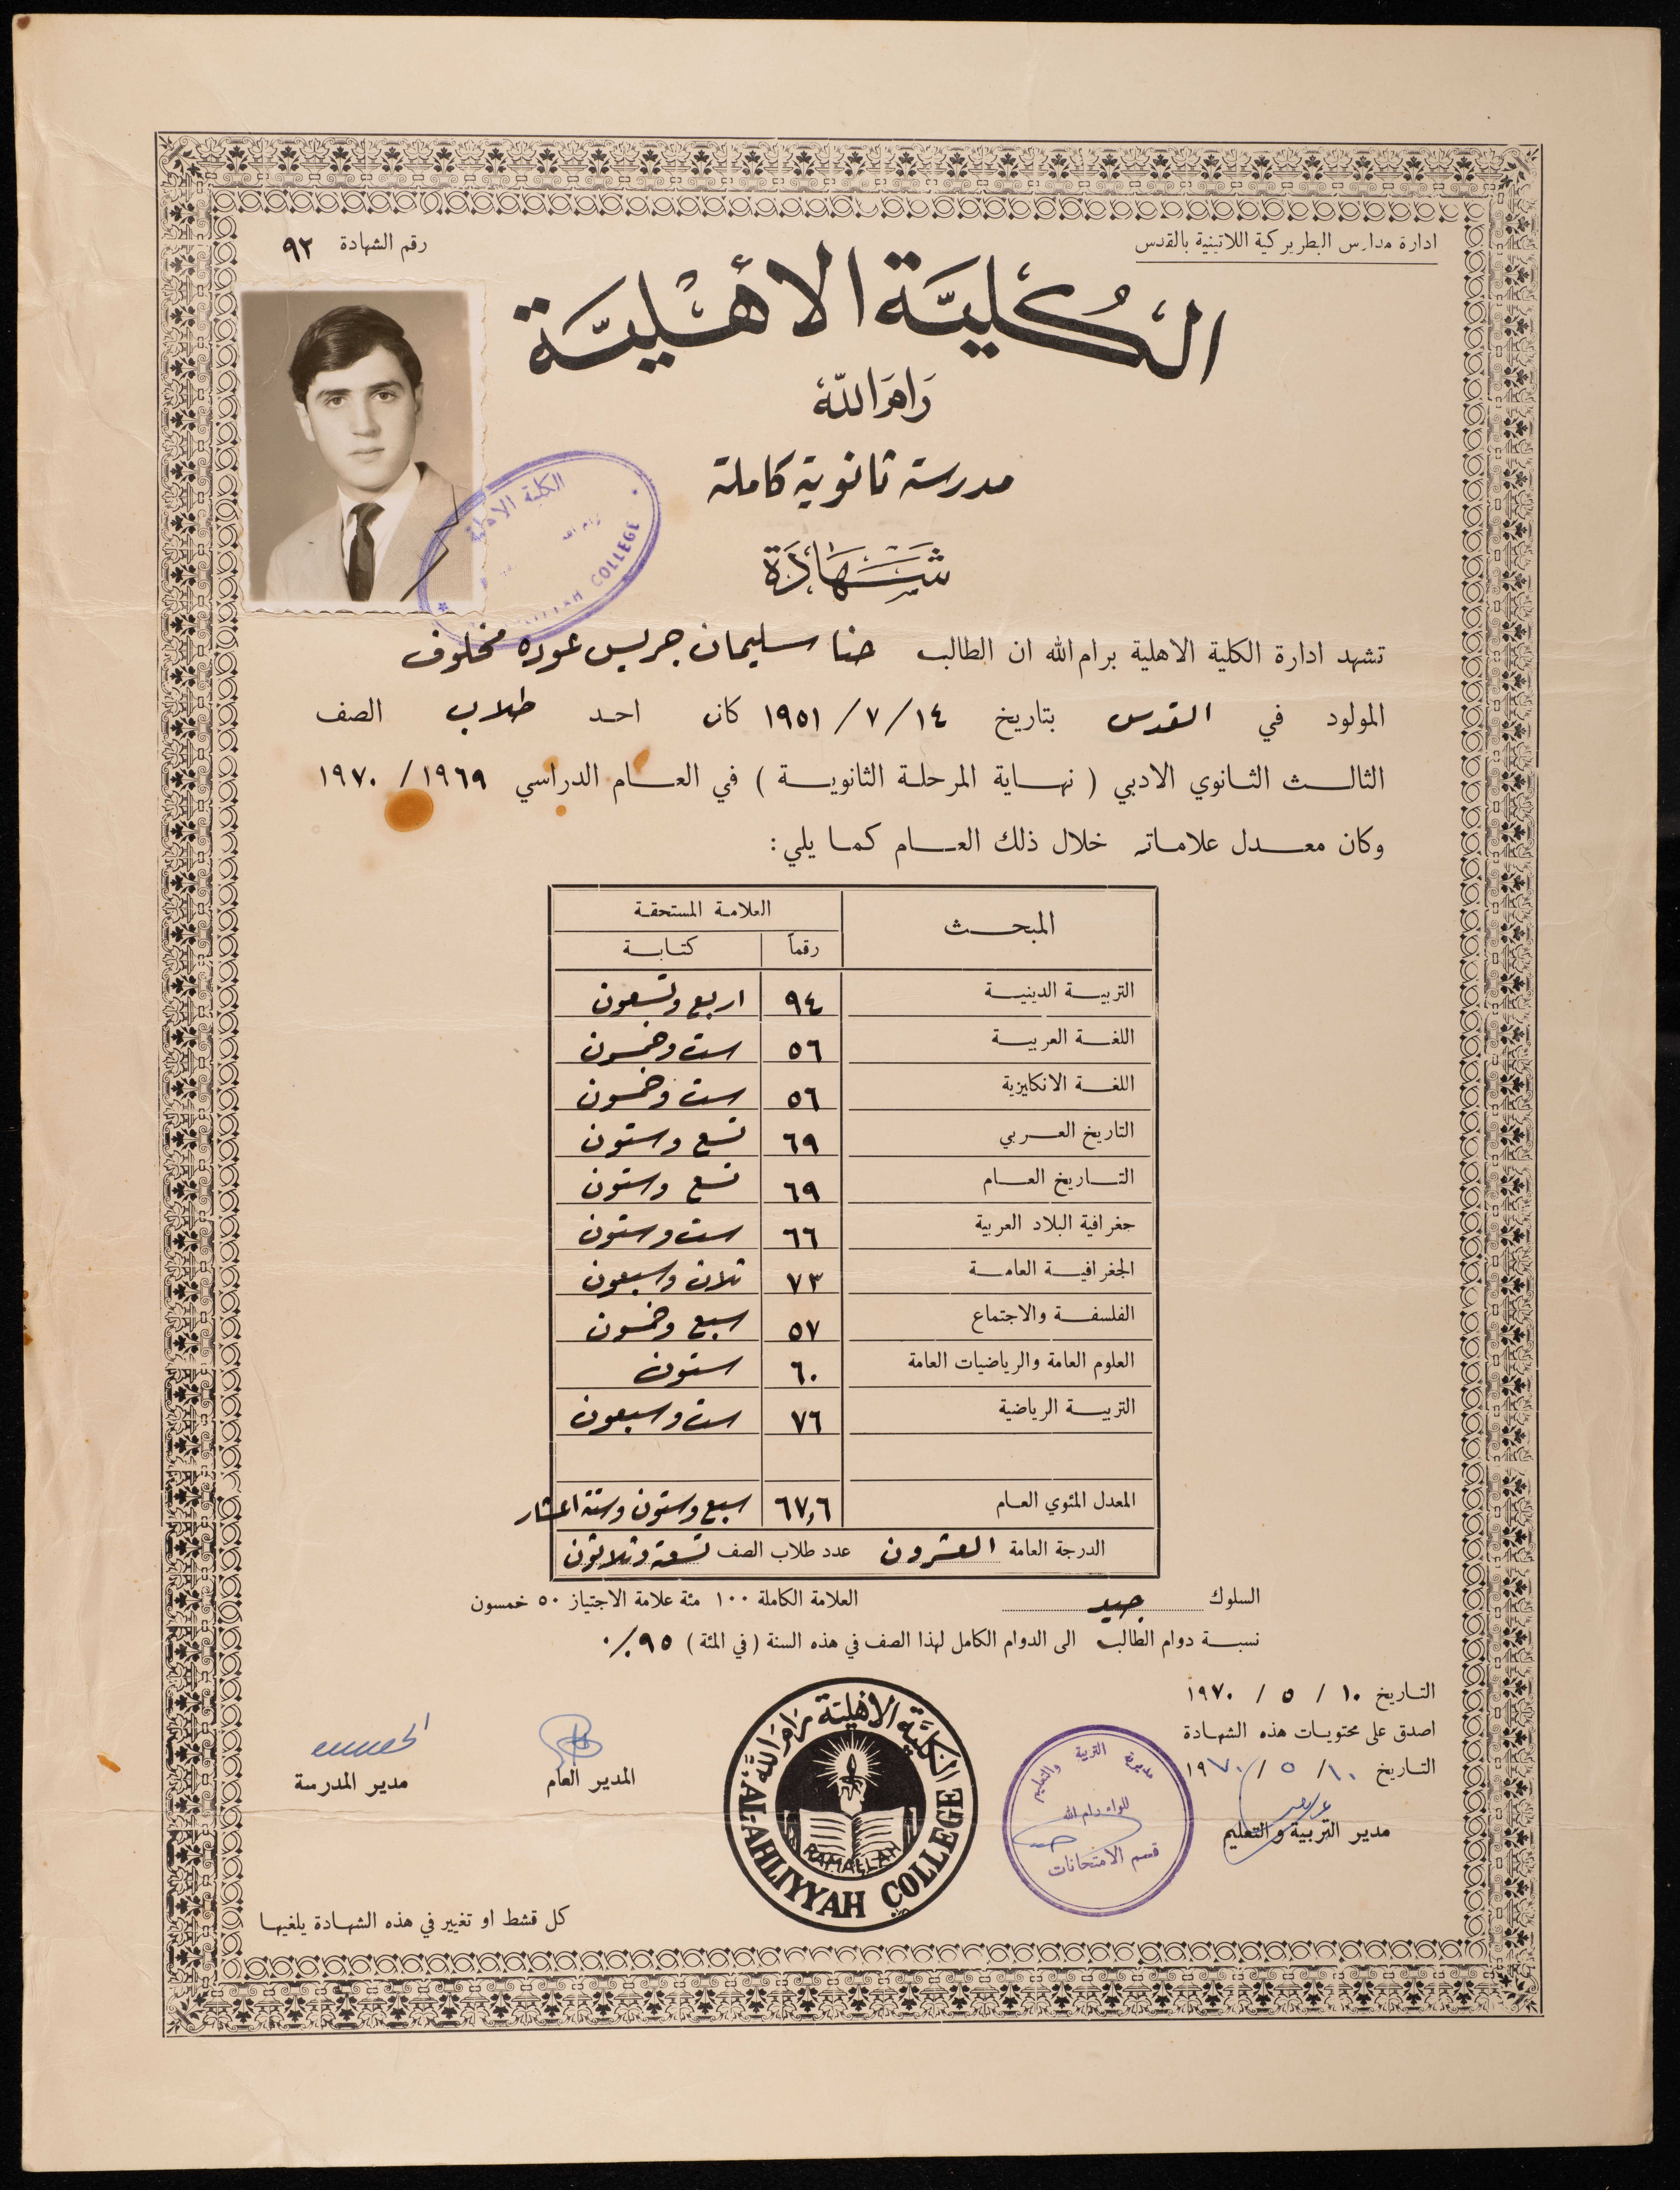 ادارة مدارس البطريركية اللاتينية بالقدس
رقم الشهادة ٩٢
الكُليَّة الأهْليَّة
رَام الله
مدرسة ثانوية كاملة
شَهَادَة
الكلية الاهلية
رام الله
COLLEGE
تشهد ادارة الكلية الاهلية برام الله ان الطالب حنا سليمان جريس عوده مخلوف
المولود في القدس بتاريخ ١٤ / ٧ / ١٩٥١ كان احد طلاب الصف
الثالث الثانوي الادبي ( نهاية المرحلة الثانوية ) في العام الدراسي ١٩٦٩ / ١٩٧٠
وكان معدل علاماته خلال ذلك العام كما يلي :
المبحث العلامة المستحقة
رقماً كتابة
التربية الدينية ٩٤ اربع وتسعون
اللغة العربية ٥٦ ست وخمسون
اللغة الانكليزية ٥٦ ست وخمسون
التاريخ العربي ٦٩ تسع وستون
التاريخ العام ٦٩ تسع وستون
جغرافية البلاد العربية ٦٦ ست وستون
الجغرافية العامة ٧٣ ثلاث وسبعون
الفلسفة والاجتماع ٥٧ سبع وخمسون
العلوم العامة والرياضيات العامة ٦٠ ستون
التربية الرياضية ٧٦ ست وسبعون
المعدل المئوي العام ٦٧,٦ سبع وستون وستة اعشار
الدرجة العامة العشرون عدد طلاب الصف تسعة وثلاثون
السلوك جيد العلامة الكاملة ١٠٠ مئة علامة الاجتياز ٥٠ خمسون
نسبة دوام الطالب الى الدوام الكامل لهذا الصف في هذه السنة ( في المئة ) ٩٥ ٪
التاريخ ١٠ / ٥ / ١٩٧٠
اصدق على محتويات هذه الشهادة
التاريخ ١٠ / ٥ / ١٩٧٠
مدير التربية والتعليم
مديرية التربية والتعليم
للواء رام الله
قسم الامتحانات
الكليَّة الأهليَّة رَام الله
RAMALLAH
AL-AHLIYYAH COLLEGE
المدير العام
مدير المدرسة
كل قشط او تغيير في هذه الشهادة يلغيها